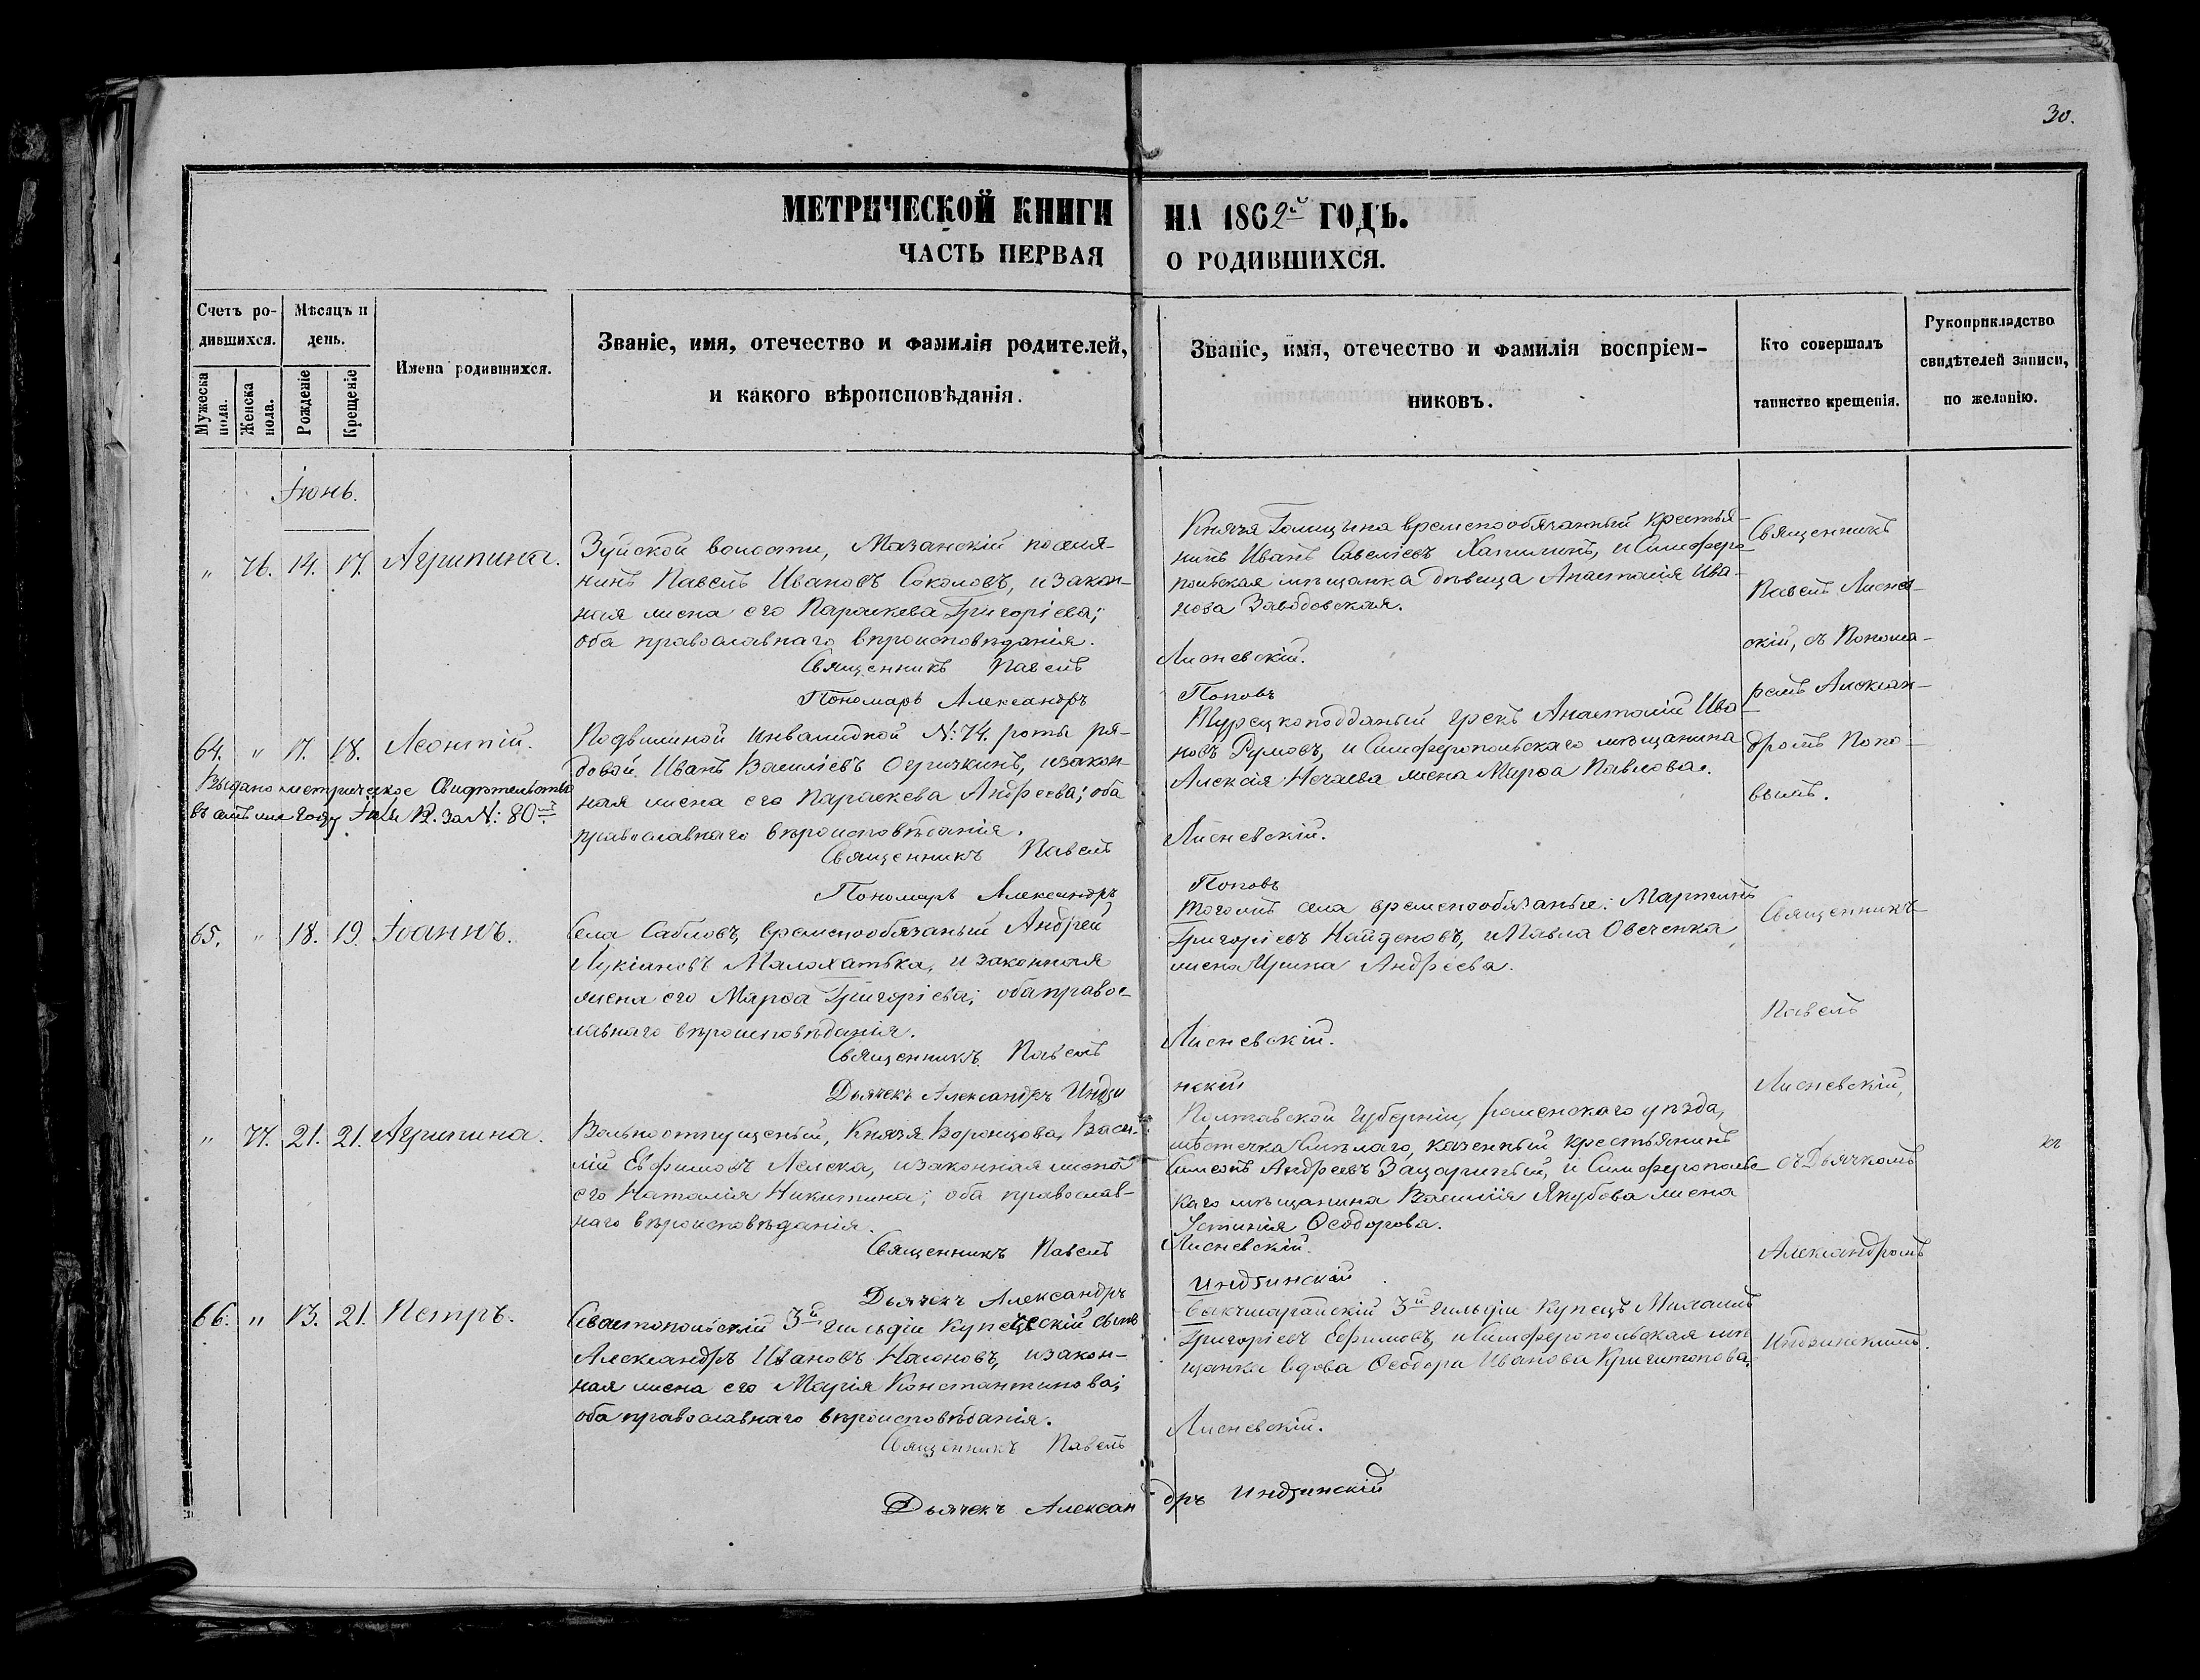 30.
МЕТРИЧЕСКОЙ КНИГИ НА 1862й ГОДЪ.
ЧАСТЬ ПЕРВАЯ О РОДИВШИХСЯ.
Счетъ ро-
дившихся.
Мужеска пола.
Женска пола.
Мѣсяцъ и
день.
Рожденіе
Крещеніе
Имена родившихся.
Званіе, имя, отечество и фамилія родителей,
и какого вѣроисповѣданія.
Званіе, имя, отечество и фамилія воспріем-
никовъ.
Кто совершалъ
таинство крещенія.
Рукоприкладство
свидѣтелей записи,
по желанію.
Іюнь.
" 76. 14. 17. Агрипина.
Зуйской волости, Мазанскій поселя-
нинъ Павелъ Ивановъ Соколовъ, и закон-
ная жена его Параскева Григоріева;
оба православнаго вѣроисповѣданія.
Священникъ Павелъ Лисневскій.
Пономарь Александръ Поповъ
Князя Голицына временообязанный крестья-
нинъ Иванъ Савеліевъ, и Симферо-
польская мѣщанка дѣвица Анастасія Ива-
нова Заводовская.
Священникъ
Павелъ Лиснев-
скій, съ Понома-
ремъ Алексан-
дромъ Попо-
вымъ.
64. " 17. 18. Леонтій.
Выдано метрическое Свидѣтельство
въ семъ же году Іюля 12. за N: 80м
Подвижной инвалидной N: 74. роты ря-
довой Иванъ Василіевъ Огризкинъ, и закон-
ная жена его Параскева Андреева; оба
православнаго вѣроисповѣданія.
Священникъ Павелъ Лисневскій.
Пономарь Александръ Поповъ
Турецкоподданый грекъ Анастасій Ива-
новъ Румовъ, и Симферопольскаго мѣщанина
Алексія Нечаева жена Марѳа Павлова.
65. " 18. 19. Іоаннъ.
Села Сабловъ, временообязаный Андрей
Лукіановъ Малохатька, и законная
жена его Марѳа Григоріева; оба правос-
лавнаго вѣроисповѣданія.
Священникъ Павелъ Лисневскій.
Дьячекъ Александръ Индзинскій
Тогожъ села временообязаные: Мартинъ
Григоріевъ Найденовъ, и Павла Овеченка
жена Ирина Андреева.
Священникъ
Павелъ
Лисневскій,
съ Дьячкомъ
Александромъ
Индзинскимъ.
" 77. 21. 21. Агрипина.
Вольноотпущеный, Князя Воронцова, Васи-
лій Евфимовъ Лелека, и законная жена
его Наталія Никитина; оба православ-
наго вѣроисповѣданія.
Священникъ Павелъ Лисневскій.
Дьячекъ Александръ Индзинскій
Полтавской губерніи, роменскаго уѣзда,
мѣстечка Смѣлаго, казенный крестьянинъ
Симеонъ Андреевъ Зацаринный, и Симферопольс-
каго мѣщанина Василія Якубова жена
Устинія Ѳеодорова.
66. " 13. 21. Петръ.
Севастопольскій 3й гильдіи Купеческій сынъ
Александръ Ивановъ, и закон-
ная жена его Марія Константинова;
оба православнаго вѣроисповѣданія.
Священникъ Павелъ Лисневскій.
Дьячекъ Александръ Индзинскій
3й гильдіи Купецъ Михаилъ
Григоріевъ Ефимовъ, и Симферопольская мѣ-
щанка вдова Ѳеодора Иванова